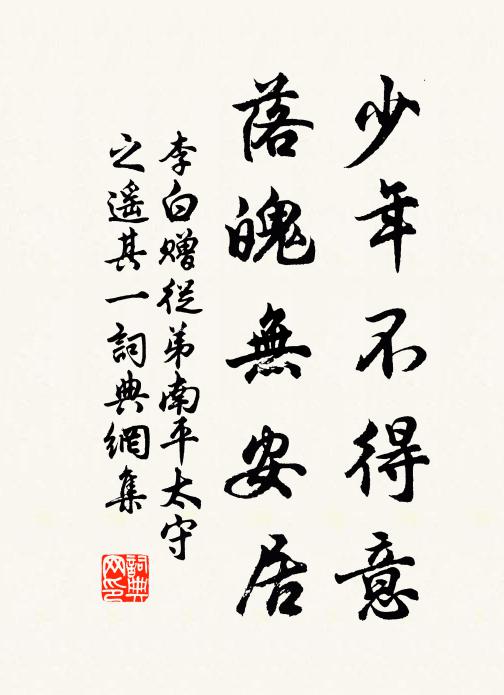 少年不得意
落魄無安居
李白贈從弟南平太守
之遥其一詞典網集
詞典网印